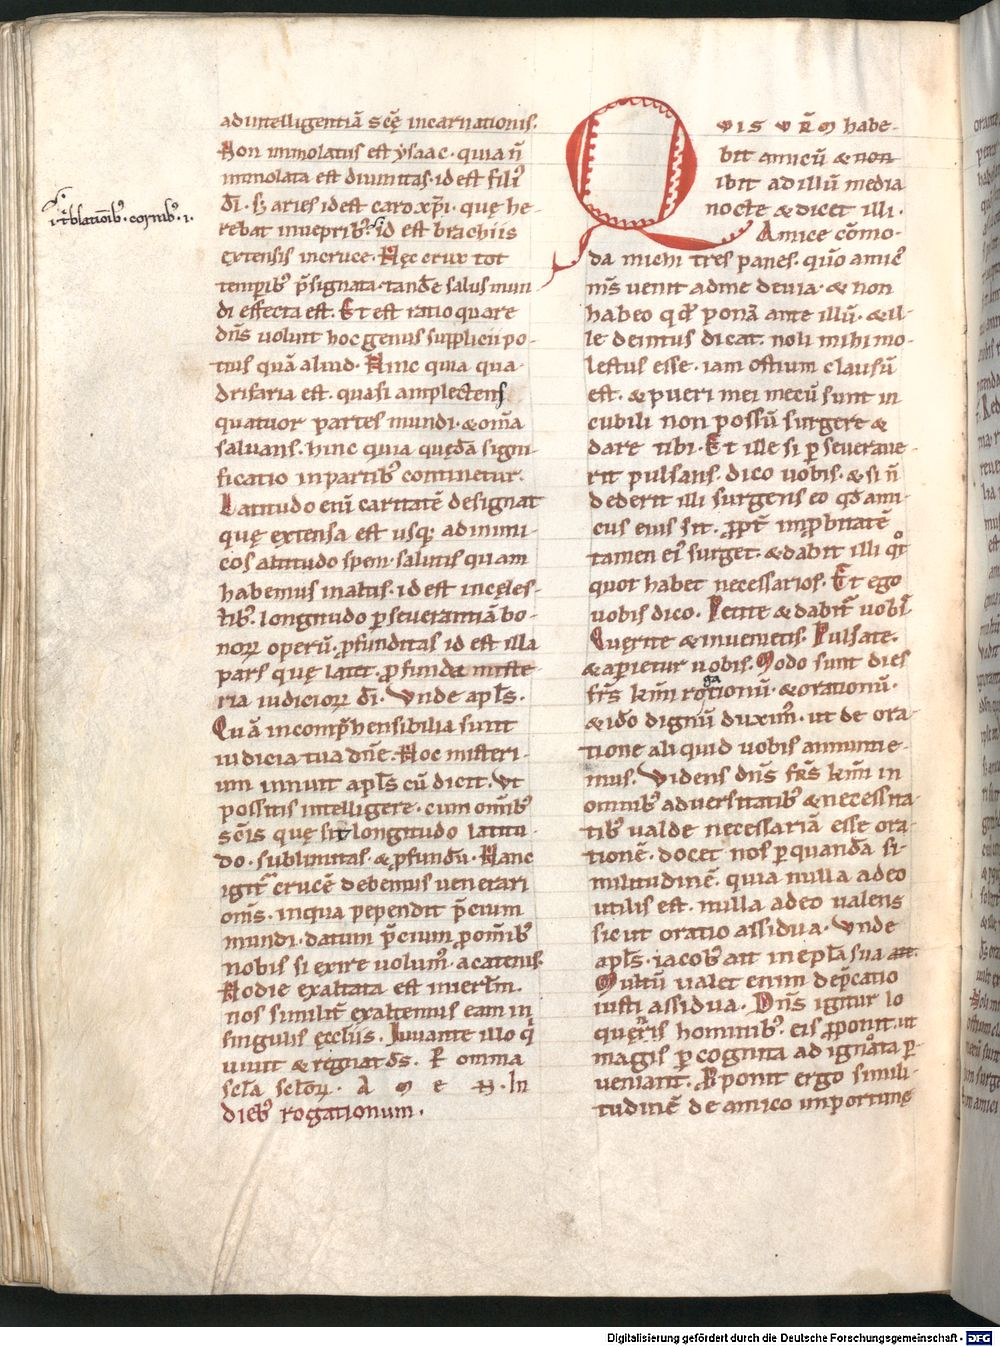 ad intelligentiā scę̄ incarnationis.
Non immolatus est ẏsaac. quia n̄
immolata est diuinitas. id est fili9
dī. s; aries id est caro xp̄i. quę he-
rebat in uepribꝫ. id est brachiis
extensis in cruce. Hęc crux tot
temporibꝫ p̄signata. tandē salus mun
di effecta est. Et est ratio quare
dn̄s uoluit hoc genus supplicii po-
tius quā aliud. Hinc quia qua-
drifaria est. quasi amplectens
quatuor partes mundi. & om̄a
saluans. hinc quia quędā signi-
ficatio in partibꝫ continetur.
Latitudo eni caritatē designat
quę extensa est usqꝫ ad inimi-
cos altitudo spem salutis quam
habemus in altis. id est in cęles-
tibꝫ. longitudo pseuerantiā bo-
noꝝ operū. pfunditas id est illa
pars quę latet. profunda miste
ria iudicioꝝ dī. Vnde apl̄s.
Quā incomp̄hensibilia sunt
iudicia tua dn̄e. Hoc misteri-
um innuit apl̄s cū dicit. Vt
possitis intelligere. cum om̄ibꝫ
sc̄is quę sit longitudo latitu-
do. sublimitas. & pfundū. Hanc
igit᷑ crucē debemus uenerari
om̄s. in qua pependit p̄cium
mundi. datum p̄cium p om̄ibꝫ
nobis si exire uolum9. a catenis.
Hodie exaltata est in ierl̄m.
nos similit᷑ exaltemus eam in
singulis ęccliis. Iuuante illo q̇
uiuit & regnat ds̄. P omnia
scl̄a scl̄oꝝ. A M E N. In
diebꝫ rogationum.
i. tblationibꝫ. cornibꝫ. i.
QVIS VR̄M habe-
bit amicū & non
ibit ad illū media
nocte & dicet illi.
Amice cōmo-
da michi tres panes. quō amic9
m̄s uenit ad me de uia. & non
habeo qd̄ ponā ante illū. & il-
le deintus dicat. noli mihi mo-
lestus esse. iam ostium clausū
est. & pueri mei mecū sunt in
cubili non possū surgere &
dare tibi. Et ille si pseuerave-
rit pulsans. dico uobis. & si n̄
dederit illi surgens eo qd̄ ami-
cus eius sit. ppt̄ impbitatē
tamen ei9 surget. & dabit illi qt
quot habet necessarios. Et ego
uobis dico. Petite & dabit᷑ uobis.
Querite & inuenietis. Pulsate.
& aperietur uobis. Modo sunt dies
frs̄ kmi rogationū. & orationū.
& idō dignū duxim9. ut de ora-
tione aliquid uobis annuntie-
mus. Videns dn̄s frs̄ kmi in
omnibꝫ aduersitatibꝫ & necessita-
tibꝫ ualde necessariā esse ora-
tionē. docet nos p quandā si-
militudinē. quia nulla adeo
utilis est. nulla adeo ualens
sicut oratio assidua. Vnde
apl̄s. iacobꝫ ait in epl̄a sua
Multū ualet enim dep̄catio
iusti assidua. Dn̄s igitur lo
quens hominibꝫ. eis pponit. ut
magis p cognita ad ignota p-
ueniant. Pponit ergo simili-
tudinē de amico importunę
Digitalisierung gefördert durch die Deutsche Forschungsgemeinschaft - DFG